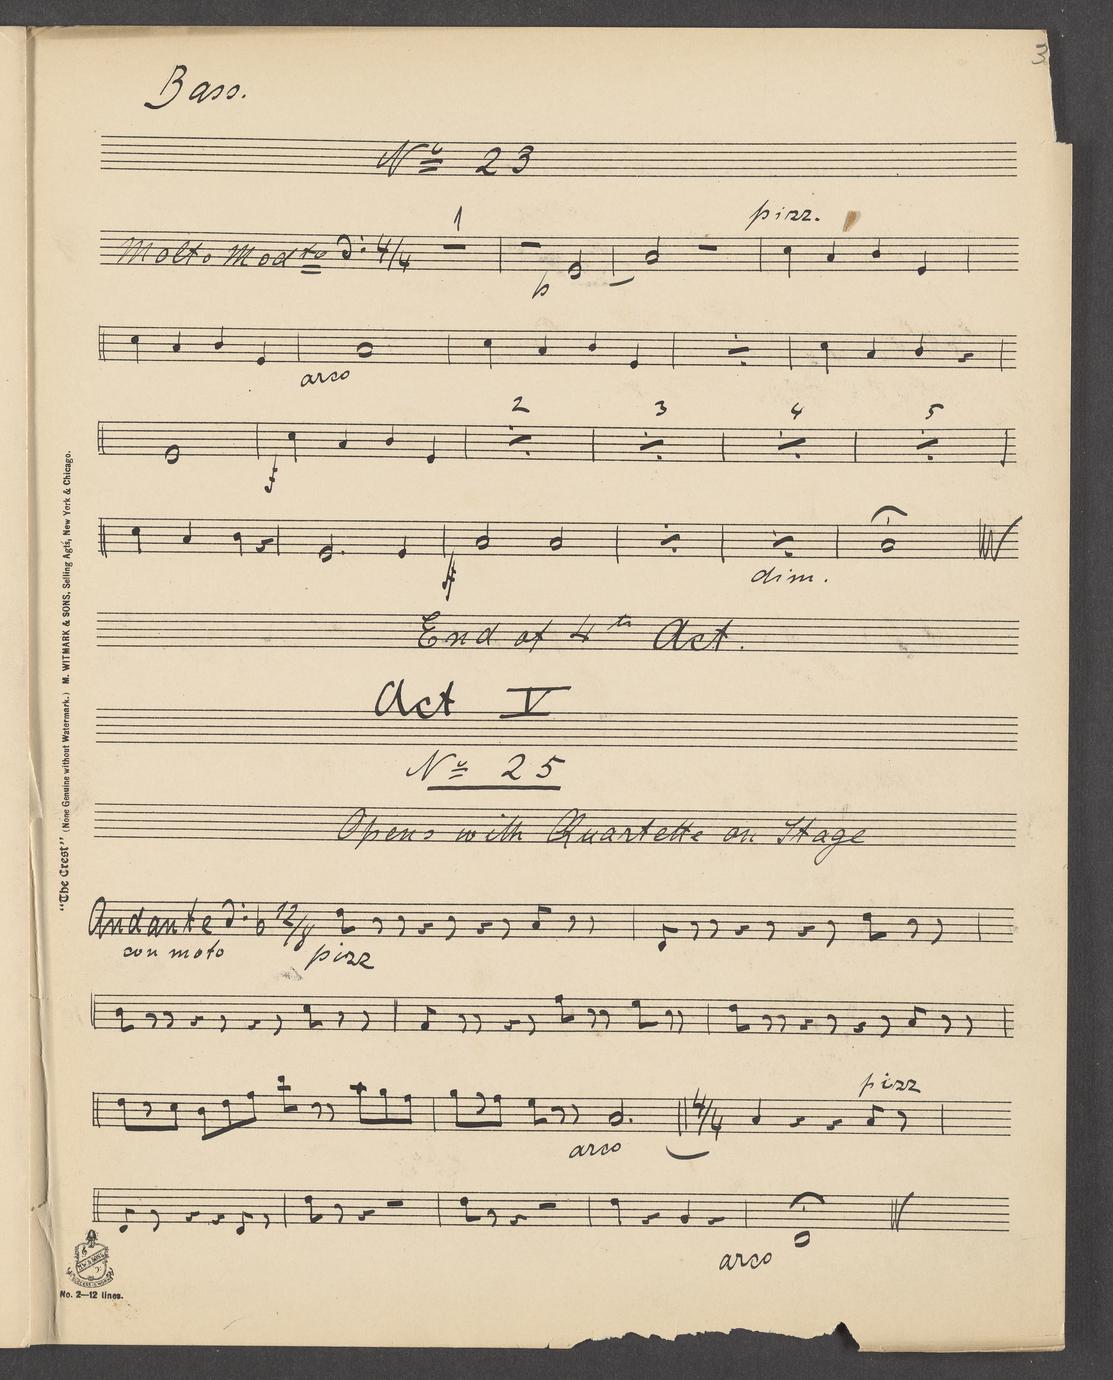 3
Bass.
No 23
pizz.
1
Molto Modto 4/4
p
arco
2 3 4 5
f
ff
dim.
End of 4th Act.
Act V
No 25
Opens with Quartette on Stage
Andante 12/8
con moto pizz
pizz
4/4
arco
arco
"The Crest" (None Genuine without Watermark.) M. WITMARK & SONS, Selling Agts, New York & Chicago.
No. 2—12 lines.